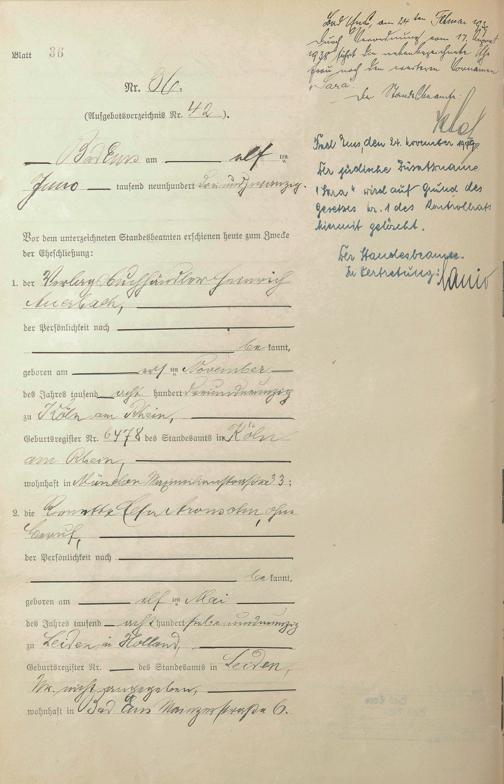 Blatt 36
Nr. 36.
(Aufgebotsverzeichnis Nr. 42).
Bad Ems am elften
Juno tausend neunhundert dreiundzwanzig.
Vor dem unterzeichneten Standesbeamten erschienen heute zum Zwecke
der Eheschließung:
1. der Verlagsbuchhändler Heinrich
Auerbach,
der Persönlichkeit nach
be kannt,
geboren am ersten November
des Jahres tausend acht hundert
zu Köln am Rhein,
Geburtsregister Nr. 6478 des Standesamts in Köln
am Rhein,
wohnhaft in München Maximilianstraße 33;
2. die Aronsohn, ohne
Beruf,
der Persönlichkeit nach
be kannt,
geboren am elften Mai
des Jahres tausend acht hundert siebenundneunzig
zu Leiden in Holland,
Geburtsregister Nr. des Standesamts in Leiden,
Nr. nicht angegeben,
wohnhaft in Bad Ems Mainzerstraße 6.
Bad Ems, am 24 ten Februar
Durch Verordnung vom 17. August
1938 führt die nebenbezeichnete Ehe-
frau noch den weiteren Vornamen
"Sara"
Der Standesbeamte:
Bad Ems, den 24. November
Der jüdische Zusatzname
"Sara" wird auf Grund des
Gesetzes Nr. 1 des Kontrollrats
hiermit gelöscht.
Der Standesbeamte.
In Vertretung: